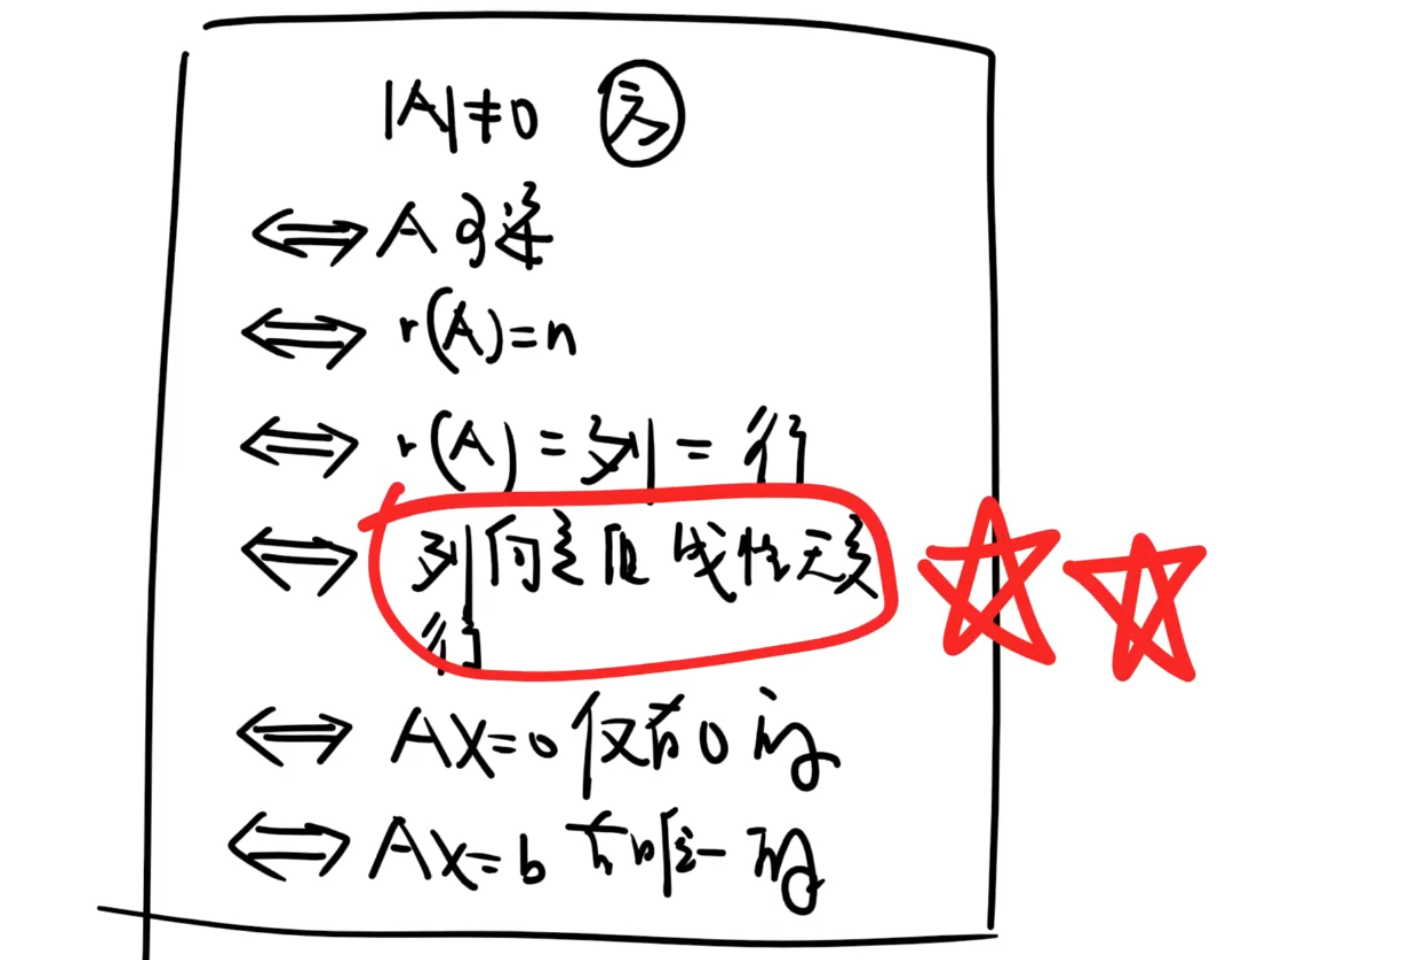 |A|≠0
⇔ A可逆
⇔ r(A)=n
⇔ r(A)=列=行
⇔ 列向量组线性无关
行
⇔ AX=0仅有0解
⇔ AX=b有唯一解